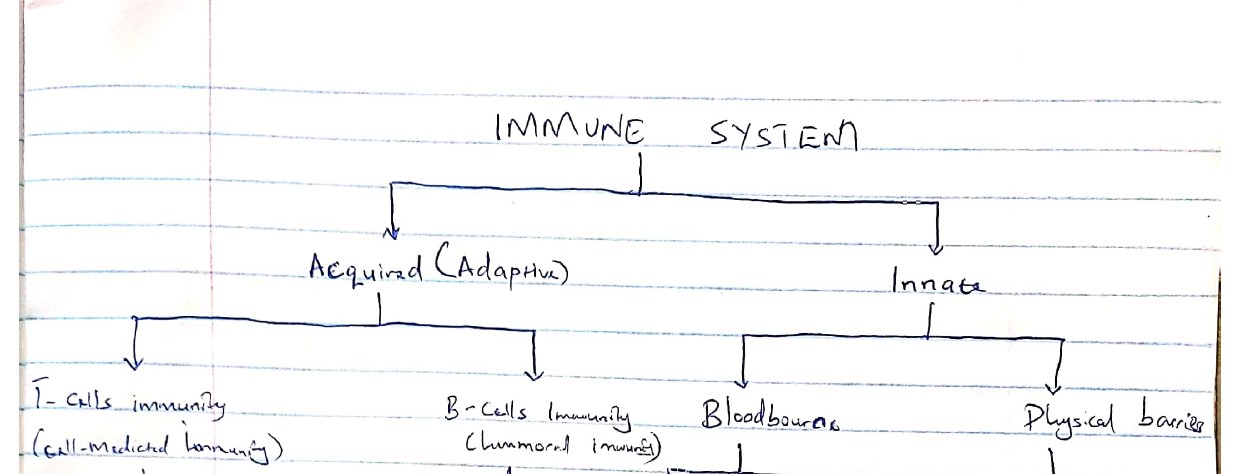 IMMUNE SYSTEM
Acquired (Adaptive)
Innate
T- Cells immunity
(Cell-Medicted Immunity)
B-Cells Immunity
(hummoral immunity)
Bloodbourne
Physical barrier